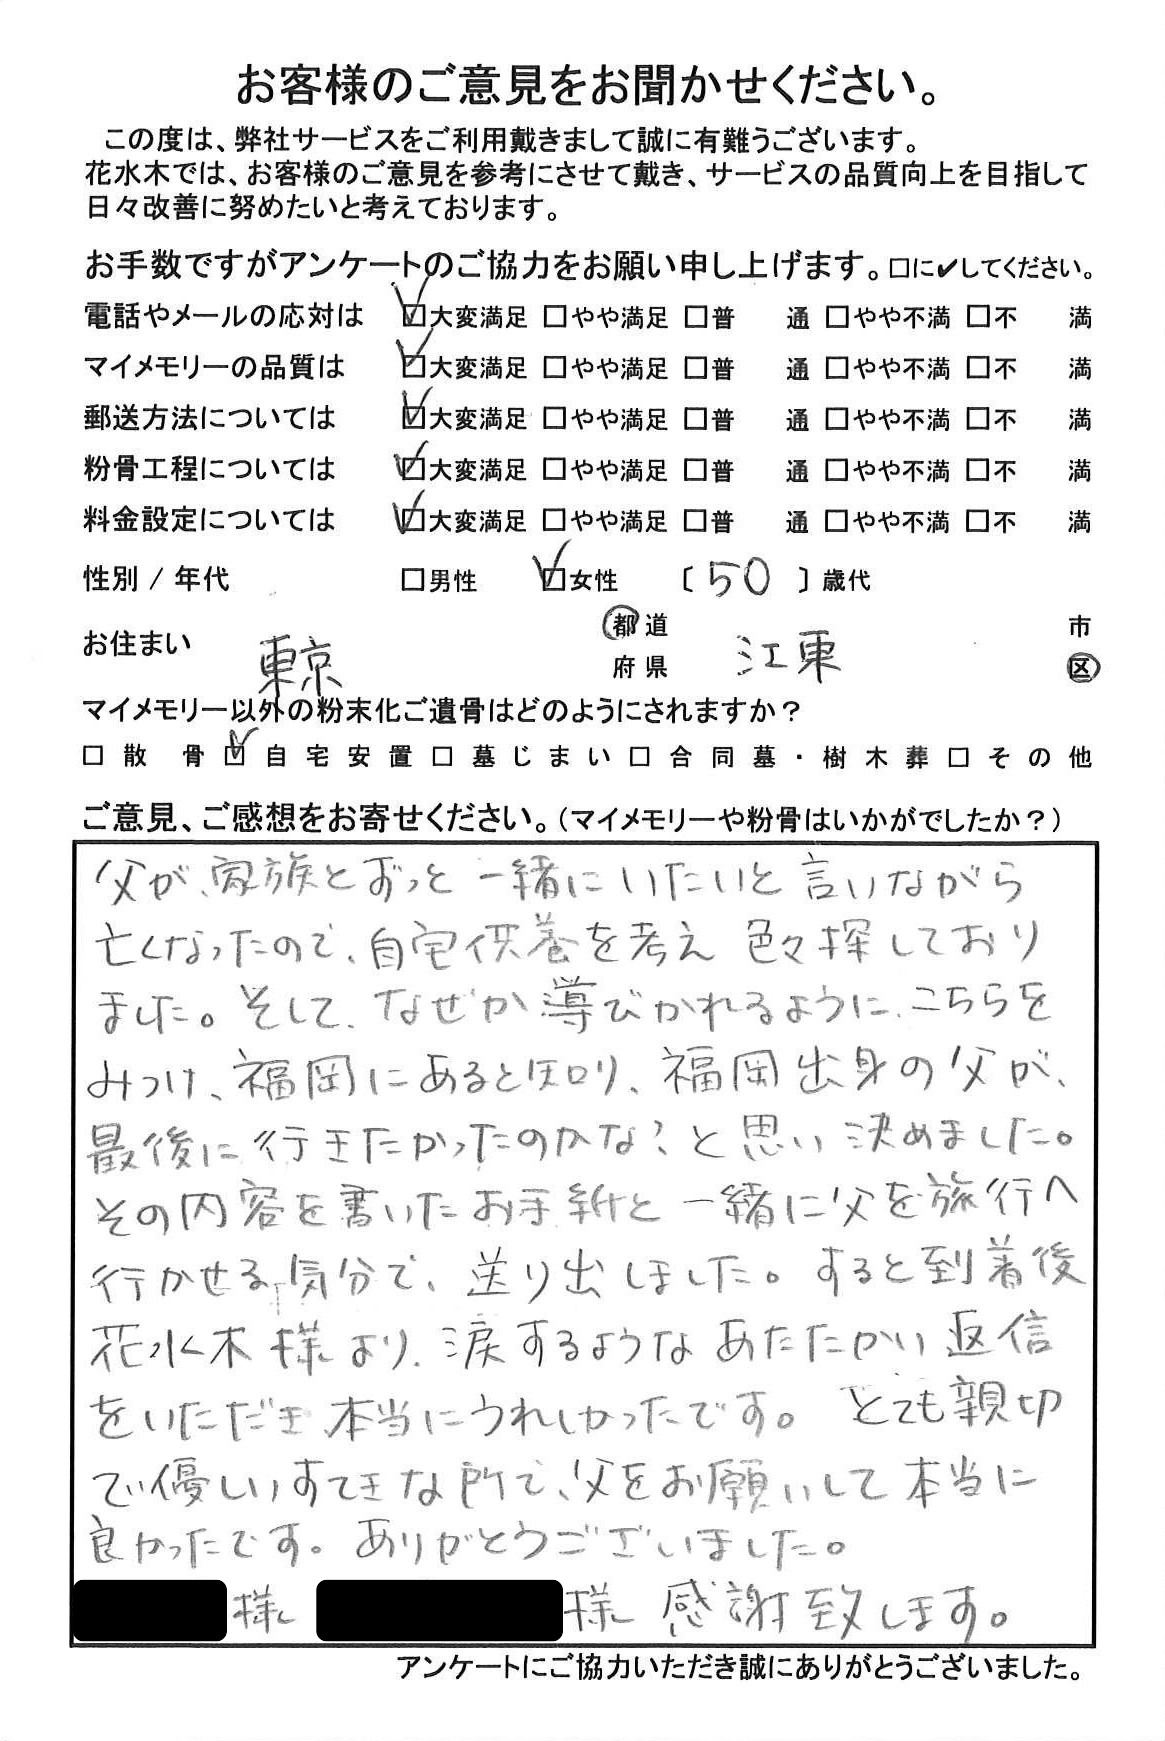 お客様のご意見をお聞かせください。
この度は、弊社サービスをご利用戴きまして誠に有難うございます。
花水木では、お客様のご意見を参考にさせて戴き、サービスの品質向上を目指して
日々改善に努めたいと考えております。
お手数ですがアンケートのご協力をお願い申し上げます。□に✔してください。
電話やメールの応対は ☑大変満足 □やや満足 □普 通 □やや不満 □不 満
マイメモリーの品質は ☑大変満足 □やや満足 □普 通 □やや不満 □不 満
郵送方法については ☑大変満足 □やや満足 □普 通 □やや不満 □不 満
粉骨工程については ☑大変満足 □やや満足 □普 通 □やや不満 □不 満
料金設定については ☑大変満足 □やや満足 □普 通 □やや不満 □不 満
性別 / 年代 □男性 ☑女性 〔 50 〕歳代
お住まい 東京 都道府県 江東 市区
マイメモリー以外の粉末化ご遺骨はどのようにされますか？
□散 骨 ☑自宅安置 □墓じまい □合同墓・樹木葬 □その他
ご意見、ご感想をお寄せください。（マイメモリーや粉骨はいかがでしたか？）
父が、家族とずっと一緒にいたいと言いながら
亡くなったので、自宅供養を考え 色々探しており
ました。そして、なぜか導びかれるように、こちらを
みつけ、福岡にあると知り、福岡出身の父が、
最後に行きたかったのかな？と思い決めました。
その内容を書いたお手紙と一緒に父を旅行へ
行かせる気分で、送り出しました。すると到着後
花水木様より、涙するようなあたたかい返信
をいただき、本当にうれしかったです。とても親切
で優しいすてきな所で、父をお願いして本当に
良かったです。ありがとうございました。
様 様 感謝致します。
アンケートにご協力いただき誠にありがとうございました。